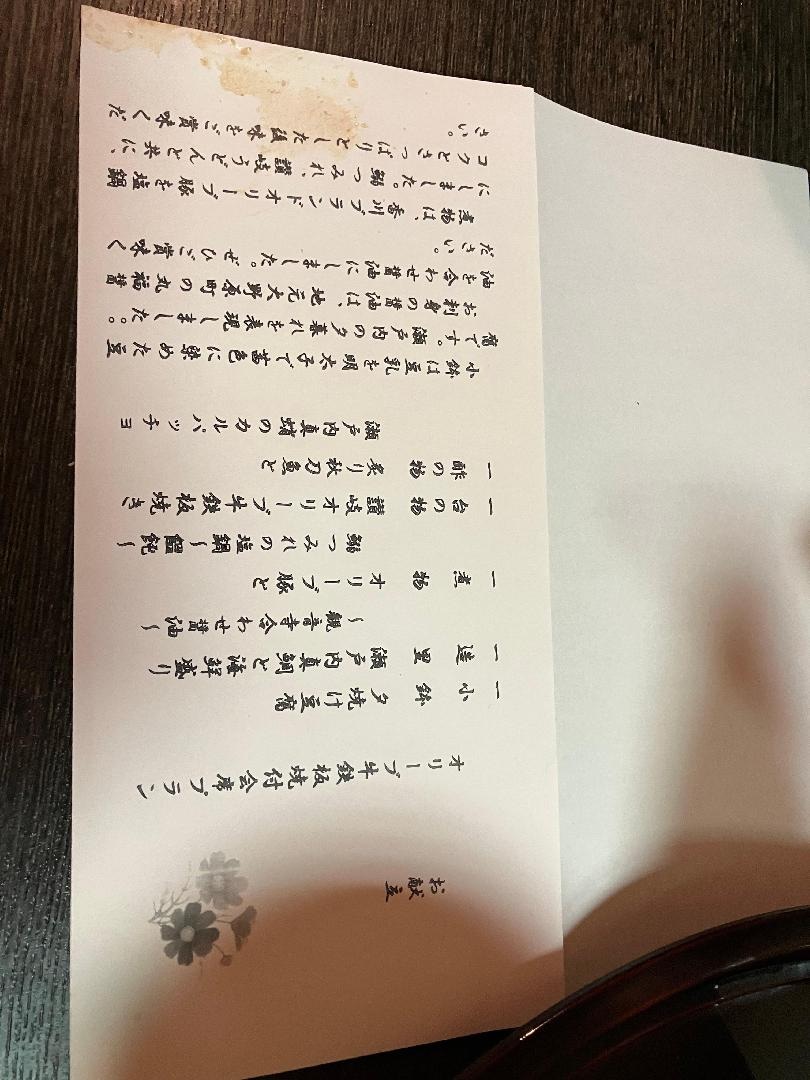 お献立
オリーブ牛鉄板焼付会席プラン
一 小鉢 夕焼け豆腐
一 造里 瀬戸内真鯛と海鮮盛り
〜観音寺合わせ醤油〜
一 煮物 オリーブ豚と
鰯つみれの塩鍋〜饂飩〜
一 台の物 讃岐オリーブ牛鉄板焼き
一 酢の物 炙り秋刀魚と
瀬戸内真蛸のカルパッチョ
小鉢は豆乳を明太子で茜色に染めた豆
腐です。瀬戸内の夕暮れを表現しました。。
お刺身の醤油は、地元大野原町の丸福醤
油を合わせ醤油にしました。ぜひご賞味く
ださい。
煮物は、香川ブランドオリーブ豚を塩鍋
にしました。鰯つみれ、讃岐うどんと共に、
コクとさっぱりとした後味をご賞味くだ
さい。